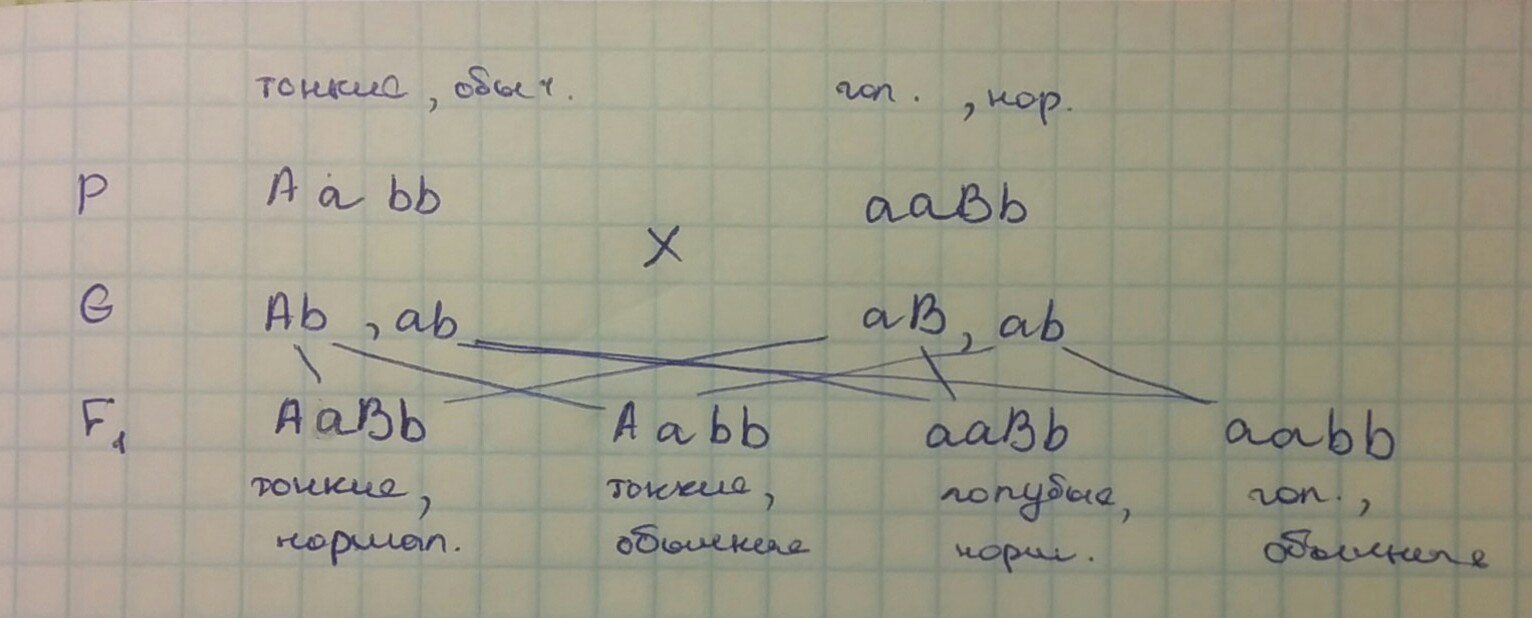 тонкие, обыч. гол., нор.
P Aa bb aaBb
X
G Ab, ab aB, ab
F1 AaBb Aabb aaBb aabb
тонкие, тонкие, голубые, гол.,
нормал. обычные норм. обычные